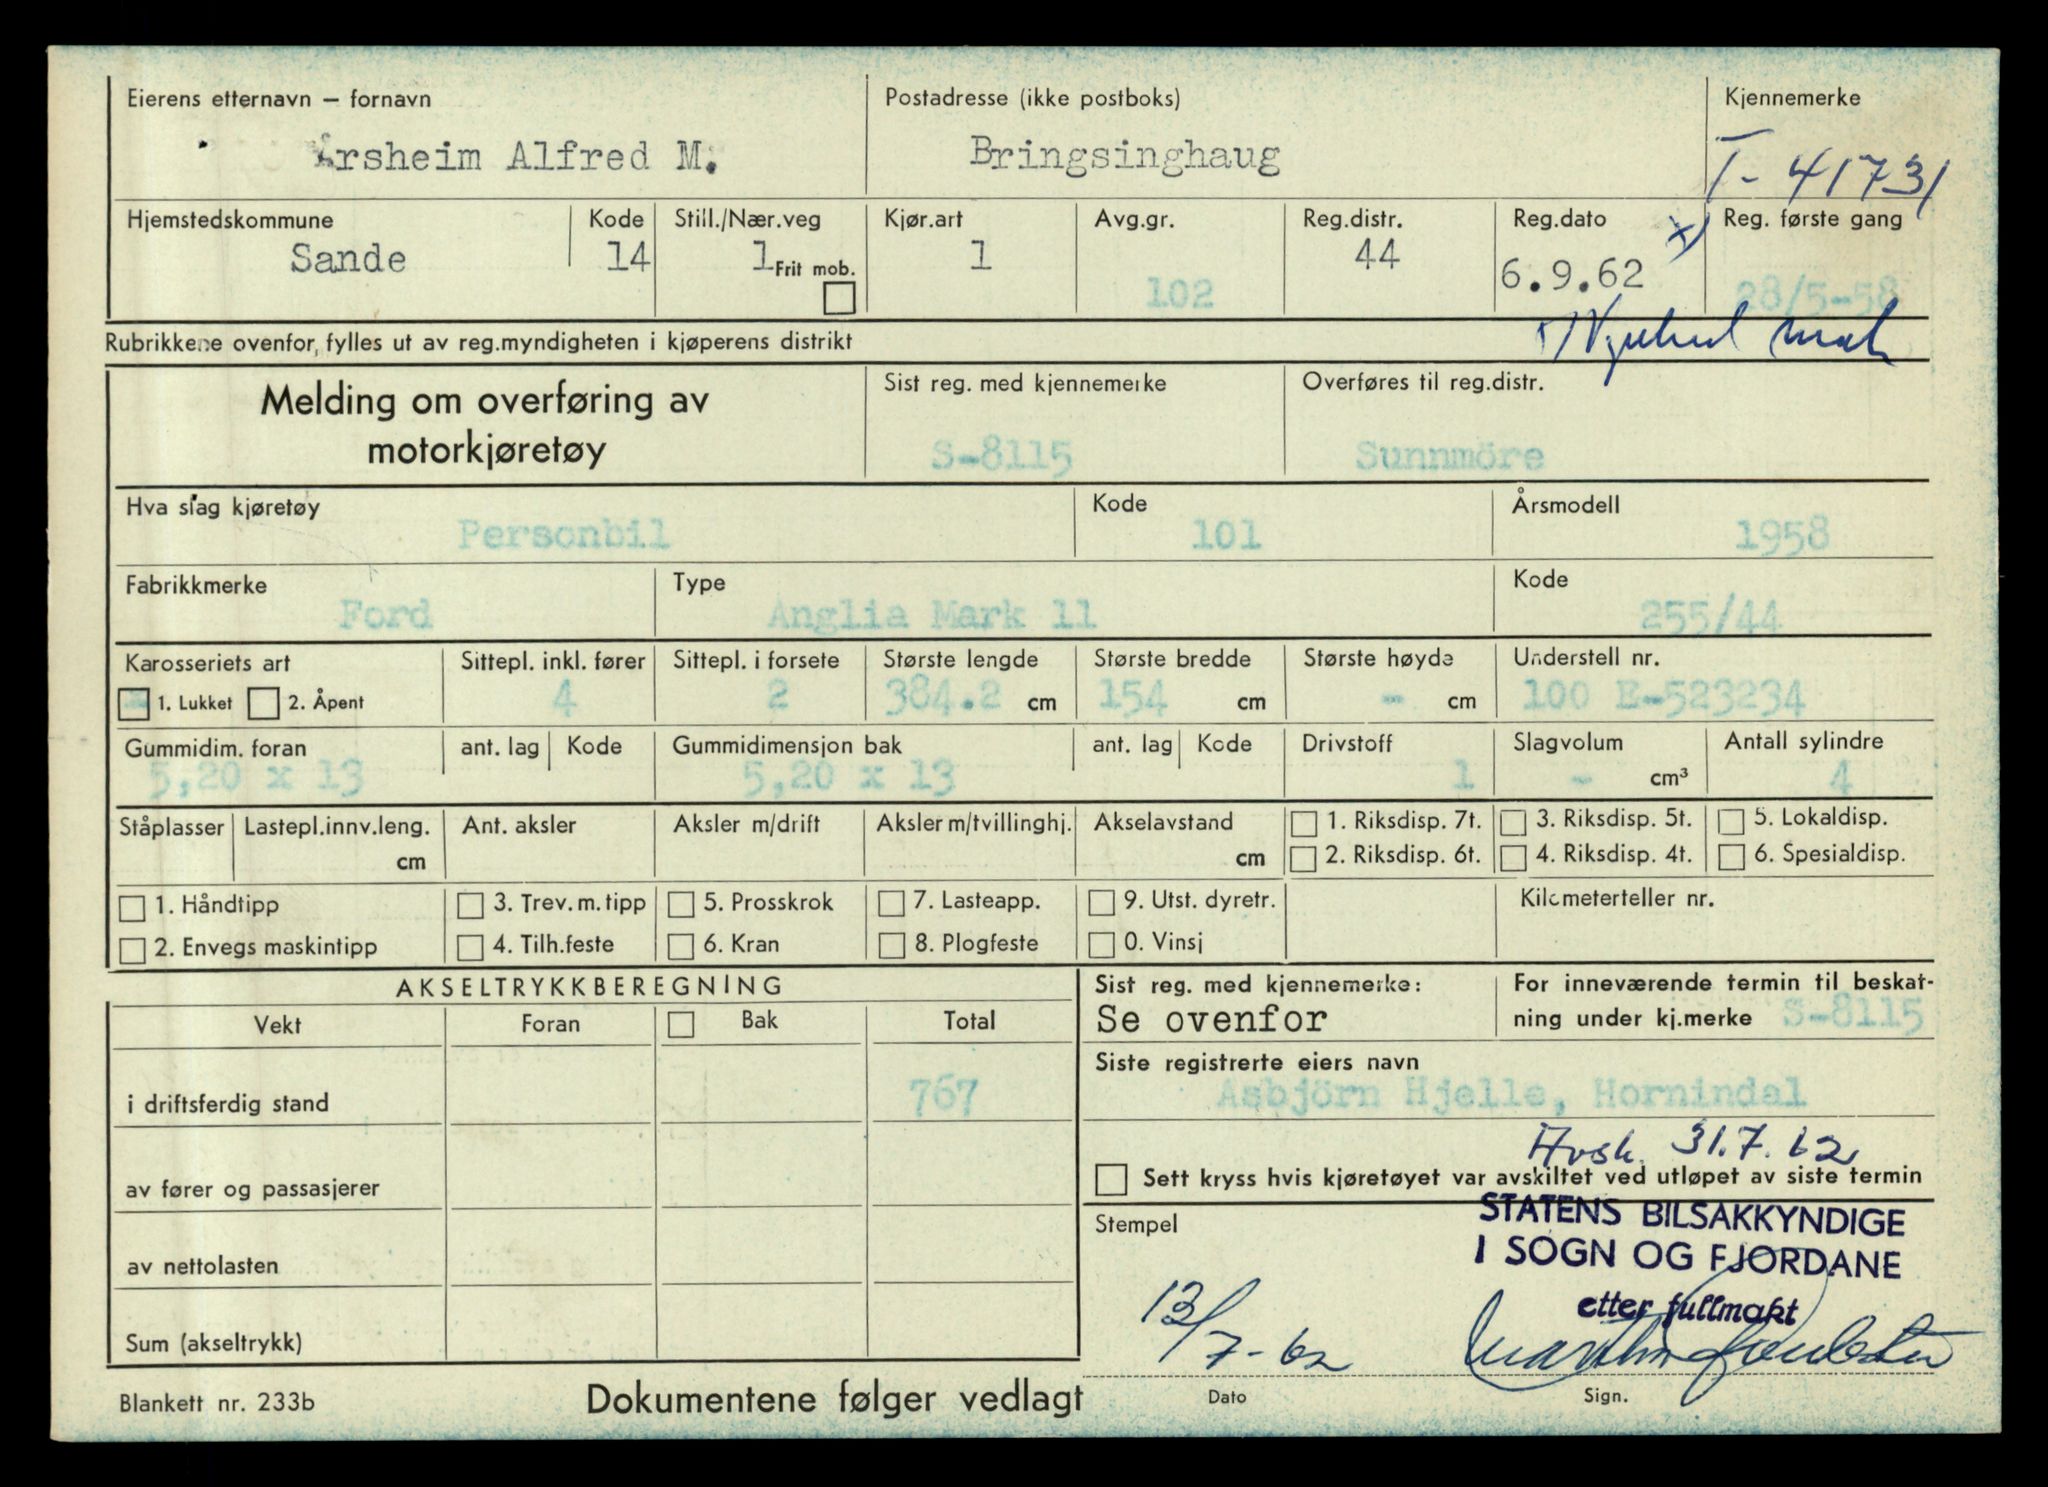 Eierens etternavn — fornavn
Årsheim Alfred M.
Postadresse (ikke postboks)
Bringsinghaug
Kjennemerke
T-41731
Hjemstedskommune
Sande
Kode
14
Still./Nær.veg
1
Frit mob.
Kjør.art
1
Avg.gr.
102
Reg.distr.
44
Reg.dato
6.9.62
x)
Reg. første gang
28/5-58
Rubrikkene ovenfor, fylles ut av reg.myndigheten i kjøperens distrikt
Melding om overføring av
motorkjøretøy
Sist reg. med kjennemerke
S-8115
Overføres til reg.distr.
Sunnmöre
Hva slag kjøretøy
Personbil
Kode
101
Årsmodell
1958
Fabrikkmerke
Ford
Type
Anglia Mark 11
Kode
255/44
Karosseriets art
1. Lukket 2. Åpent
Sittepl. inkl. fører
4
Sittepl. i forsete
2
Største lengde
384.2 cm
Største bredde
154 cm
Største høyde
- cm
Understell nr.
100 E-523234
Gummidim. foran
5,20 x 13
ant. lag Kode
Gummidimensjon bak
5,20 x 13
ant. lag Kode
Drivstoff
1
Slagvolum
- cm³
Antall sylindre
4
Ståplasser
Lastepl.innv.leng.
cm
Ant. aksler
Aksler m/drift
Aksler m/tvillinghj.
Akselavstand
cm
1. Riksdisp. 7t. 3. Riksdisp. 5t. 5. Lokaldisp.
2. Riksdisp. 6t. 4. Riksdisp. 4t. 6. Spesialdisp.
1. Håndtipp 3. Trev. m. tipp 5. Prosskrok 7. Lasteapp. 9. Utst. dyretr.
2. Envegs maskintipp 4. Tilh.feste 6. Kran 8. Plogfeste 0. Vinsj
Kilometerteller nr.
AKSELTRYKKBEREGNING
Vekt Foran Bak Total
i driftsferdig stand 767
av fører og passasjerer
av nettolasten
Sum (akseltrykk)
Sist reg. med kjennemerke:
Se ovenfor
For inneværende termin til beskat-
ning under kj.merke S-8115
Siste registrerte eiers navn
Asbjörn Hjelle, Hornindal
Avsk. 31.7.62
Sett kryss hvis kjøretøyet var avskiltet ved utløpet av siste termin
Stempel
STATENS BILSAKKYNDIGE
I SOGN OG FJORDANE
etter fullmakt
13/7-62
Dato
Sign.
Blankett nr. 233b
Dokumentene følger vedlagt